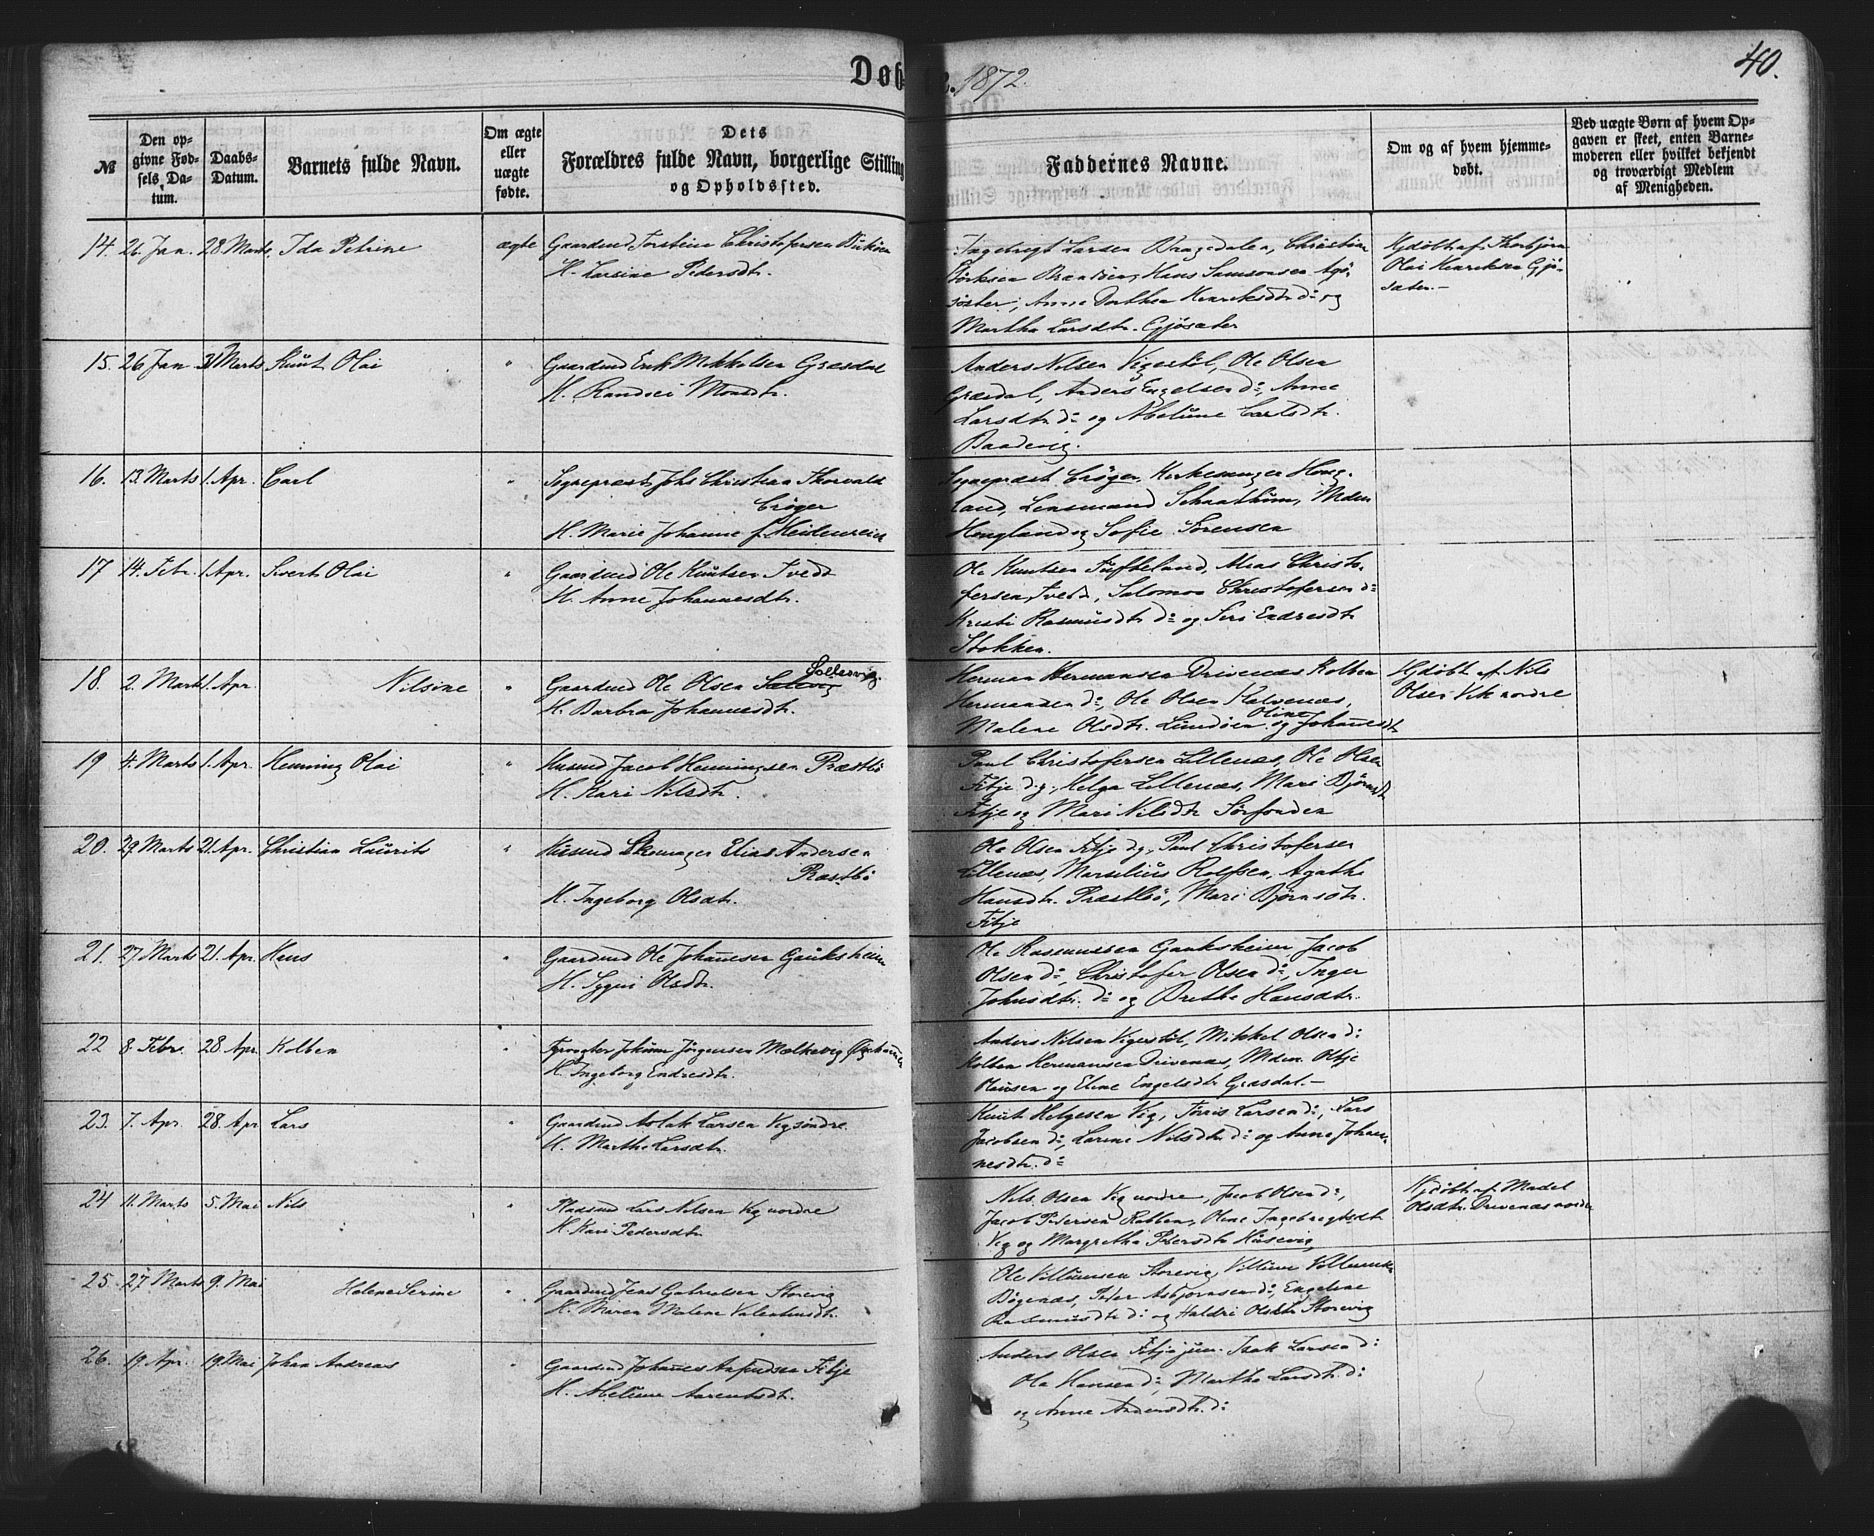 Døb
2. 1872.
40.
№
Den op-
givne Fød-
sels Da-
tum.
Daabs-
Datum.
Barnets fulde Navn.
Om ægte
eller
uægte
fødte.
Dets
Forældres fulde Navn, borgerlige Stilling
og Opholdssted.
Faddernes Navne.
Om og af hvem hjemme-
døbt.
Ved uægte Børn af hvem Op-
gaven er skeet, enten Barne-
moderen eller hvilket bekjendt
og troværdigt Medlem
af Menigheden.
14. 26 Jan. 28 Marts. Ida Petrine ægte Gaardmd Torstein Christofersen
H. Larsine Pedersdtr.
Ingebrigt Larsen Dragedalen, Christian
Hans Samsonsen
Anne Dorthea Henriksdtr do og
Martha Larsdtr. Gjøsæter
Hjdøbt af Thorbjørn
Olai Henriksen Gjø-
sæter.-
15. 26 Jan 31 Marts Knut Olai " Gaardmd Erik Mikkelsen Græsdal
H. Randvei Monsdtr.
Anders Nilsen Vigestøl, Ole Olsen
Græsdal, Anders Engelsen do, Anne
Larsdtr do og Abelune Carlsdtr.
Baadevig.
16. 13. Marts 1. Apr. Carl " Sognepræst Johs Christian Thorvald
Crøger
H. Marie Johanne f. Heidenreich
Sognepræst Crøger, Kirkesanger Houg-
land, Lensmand Schaathun, Mdm
Hougland og Sofie Sørensen
17 14. Febr. 1. Apr. Sivert Olai " Gaardmd Ole Knutsen Tvedt
H. Anne Johannesdtr.
Ole Knutsen Tufteland, Mias Christo-
fersen Tvedt, Salomon Christofersen do
Kristi Rasmusdtr do og Siri Endresdtr
Stokken.
18. 2. Marts 1. Apr. Nilsine " Gaardmd Ole Olsen Solesvig
H. Barbra Johannesdtr.
Herman Hermansen Drivenæs, Kolben
Hermansen do, Ole Olsen Kalvenæs,
Malene Olsdtr. Lundøen og Oline Johanesdt
Hjdøbt af Nils
Olsen Vik nordre
19 4. Marts 1. Apr. Henning Olai " Husmd Jacob Henningsen Præstbø
H. Kari Nilsdtr.
Paul Christofersen Lillenæs, Ole Olsen
Fitje dg., Helga Lillenæs, Mari Bjørnsdt
Fitje og Mari Nilsdtr Sørfonden
20. 29 Marts 21. Apr. Christian Laurits " Husmd Skomager Elias Andersen
Præstbø
H. Ingeborg Olsdtr.
Ole Olsen Fitje dg., Paul Christofersen
Lillenæs, Marselius Rolfsen, Agathe
Hansdtr. Præstbø, Mari Bjørnsdtr.
Fitje
21. 27 Marts 21. Apr. Hans " Gaardmd Ole Johanesen Gauksheim
H. Sygni Olsdtr.
Ole Rasmussen Gauksheim Jacob
Olsen do, Christofer Olsen do, Inger
Johnsdtr. do og Brethe Hansdtr.
22 8. Febr. 28. Apr. Kolben " Fyrvogter Johan Jørgensen Mælkevig
H. Ingeborg Endresdtr.
Anders Nilsen Vigestøl, Mikkel Olsen do
Kolben Hermansen Drivenæs, Mdm Oltje
Hansen og Eline Engelsdtr Græsdal.-
23. 7. Apr. 28. Apr Lars " Gaardmd Aslak Larsen Vig søndre
H. Marthe Larsdtr.
Knut Helgesen Vig, Tørris Larsen do, Lars
Jacobsen do, Larine Nilsdtr do og Anne Johan-
nesdtr. do
24 11. Marts 5. Mai Nils " Pladsmd Lars Nilsen Vig nordre
H. Kari Pedersdtr
Nils Olsen Vig nordre, Jacob Olsen do,
Jacob Pedersen Robben, Oline Ingebrigtsdtr
Vig og Margretha Pedersdtr Husevig
Hjdøbt af Madel
Olsdtr. Drivenæs nordre
25. 27. Marts 9. Mai Helene Serine " Gaardmd Jens Gabrielsen Storevig
H. Maren Malene Valentinsdtr.
Ole Villumsen Storevig Villum Villumsen
Bøgenæs, Peder Asbjørnsen do, Engeline
Rasmusdtr do og Haldri Olsdtr Storevig
26. 19. Apr. 19. Mai Johan Andreas " Gaardmd Johanes Anfindsen Fitje
H. Abelune Aarentsdtr.
Anders Olsen Fitje jun. Isak Larsen do
Ole Hansen do, Martha Larsdtr. do
og Anne Andersdtr. do